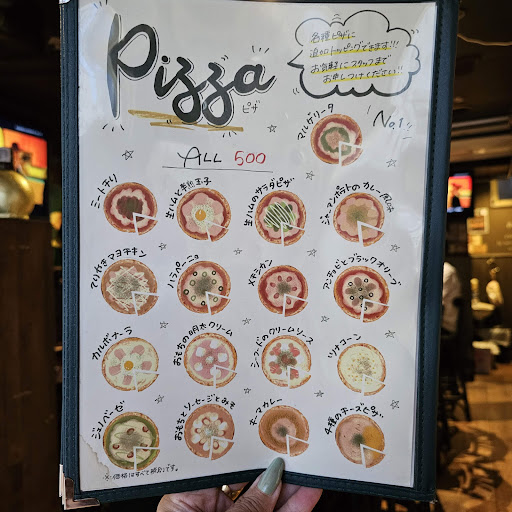 Pizza
ピザ
各種ピザに
追加トッピングできます!!!
お気軽にスタッフまで
お申しつけください!!
ALL 500
マルゲリータ
No.1
ミートチリ
生ハムと半熟玉子
生ハムのサラダピザ
ジャーマンポテトのカレー風味
てりやきマヨチキン
ハラペーニョ
メキシカン
アンチョビとブラックオリーブ
カルボナーラ
おもちの明太クリーム
シーフードのクリームソース
ツナコーン
ジェノベーゼ
おもちとソーセージとみそ
キーマカレー
4種のチーズピザ
※価格はすべて税別です。